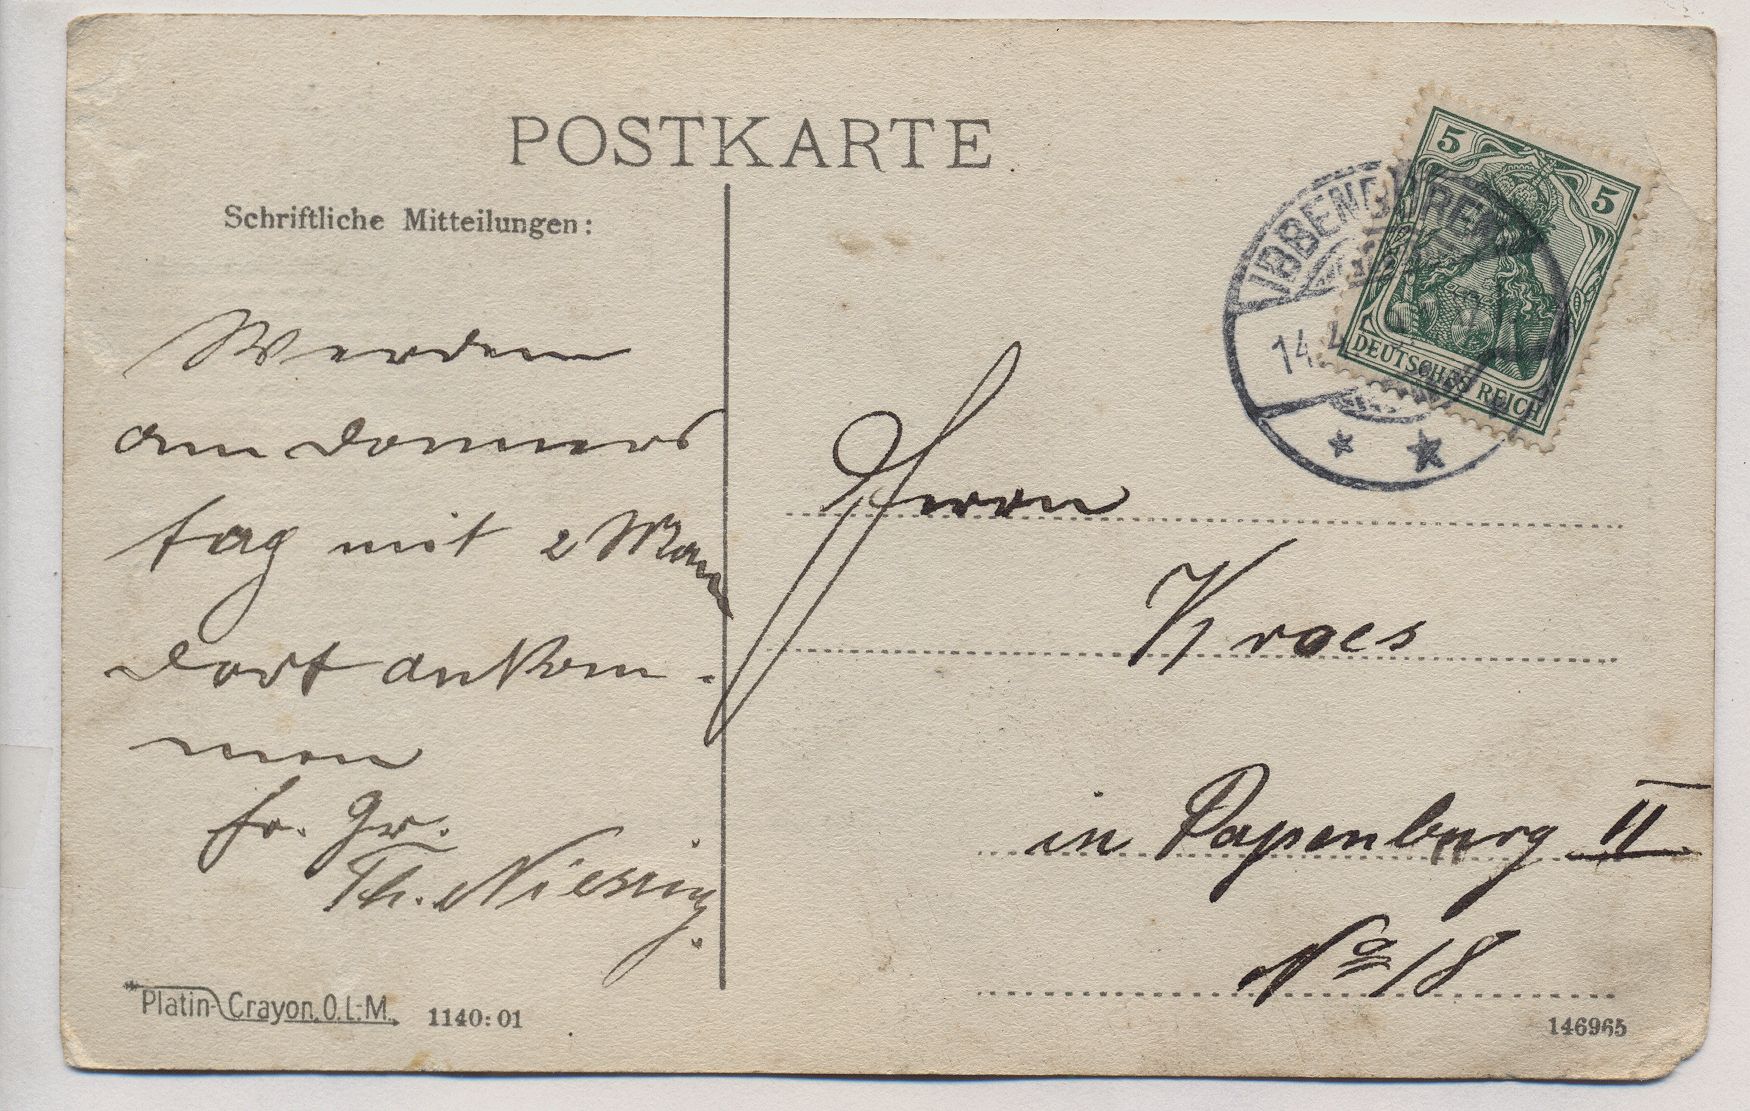 POSTKARTE
Schriftliche Mitteilungen:
Werden
am Donners
tag mit 2 Mann
dort ankom-
men
fr. Gr.
Th. Niessing.
Platin-Crayon. O.L.M. 1140:01
5 5
DEUTSCHES REICH
IBBENBÜREN
14.4
Herrn
Kroes
in Papenburg II
No 18
146965